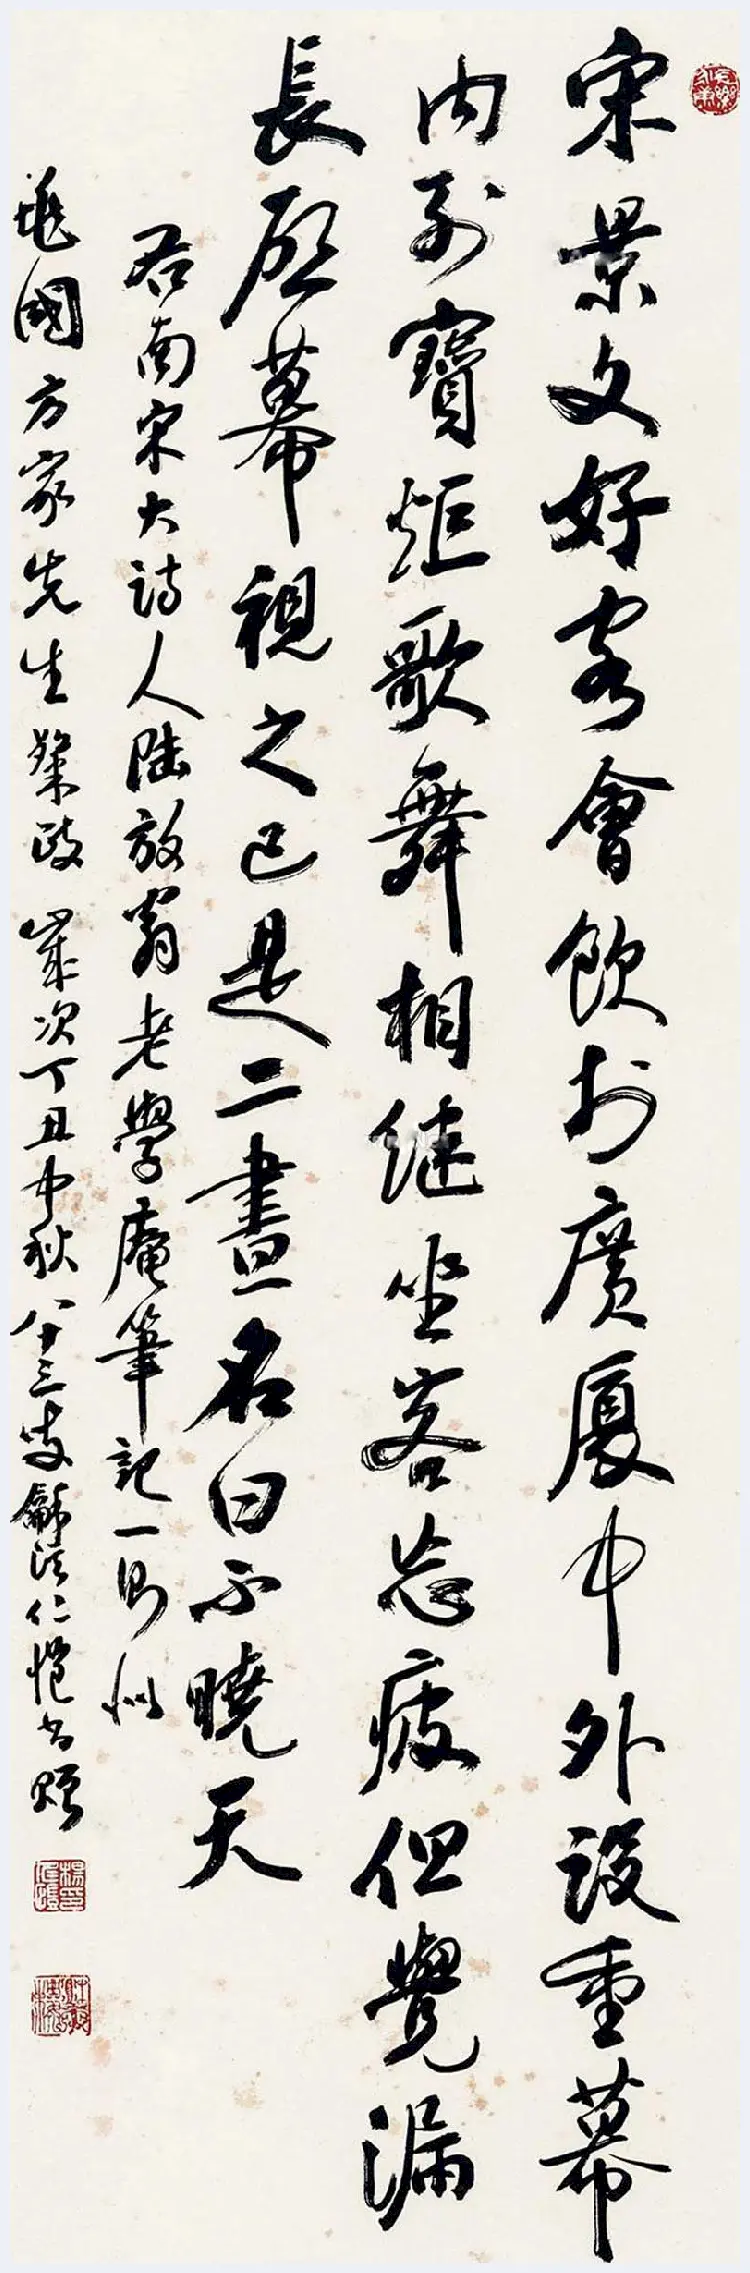 宋景文好客會飲扵廣厦中外設重幕
內列寶炬歌舞相継坐客忘疲但覺漏
長啟幕視之已是二晝名曰不曉天
右南宋大詩人陸放翁老學庵筆記一則似
國方家先生粲政 歲次丁丑中秋八十三叟龢溪仁愷書贈